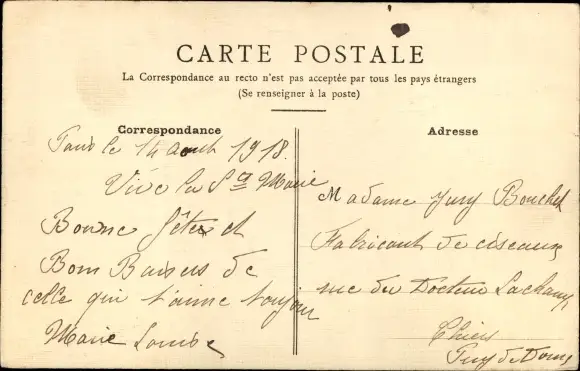 CARTE POSTALE
La Correspondance au recto n'est pas acceptée par tous les pays étrangers
(Se renseigner à la poste)
Correspondance
Paris le 14 aout 1918.
Vive la Ste Marie
Bonne fête et
Bons Baisers de
celle qui t'aime toujour
Marie Louise
Adresse
Madame Jury Bouchet
Fabricant de ciseaux
rue du Docteur Lachamp
Thiers
Puy de Dome